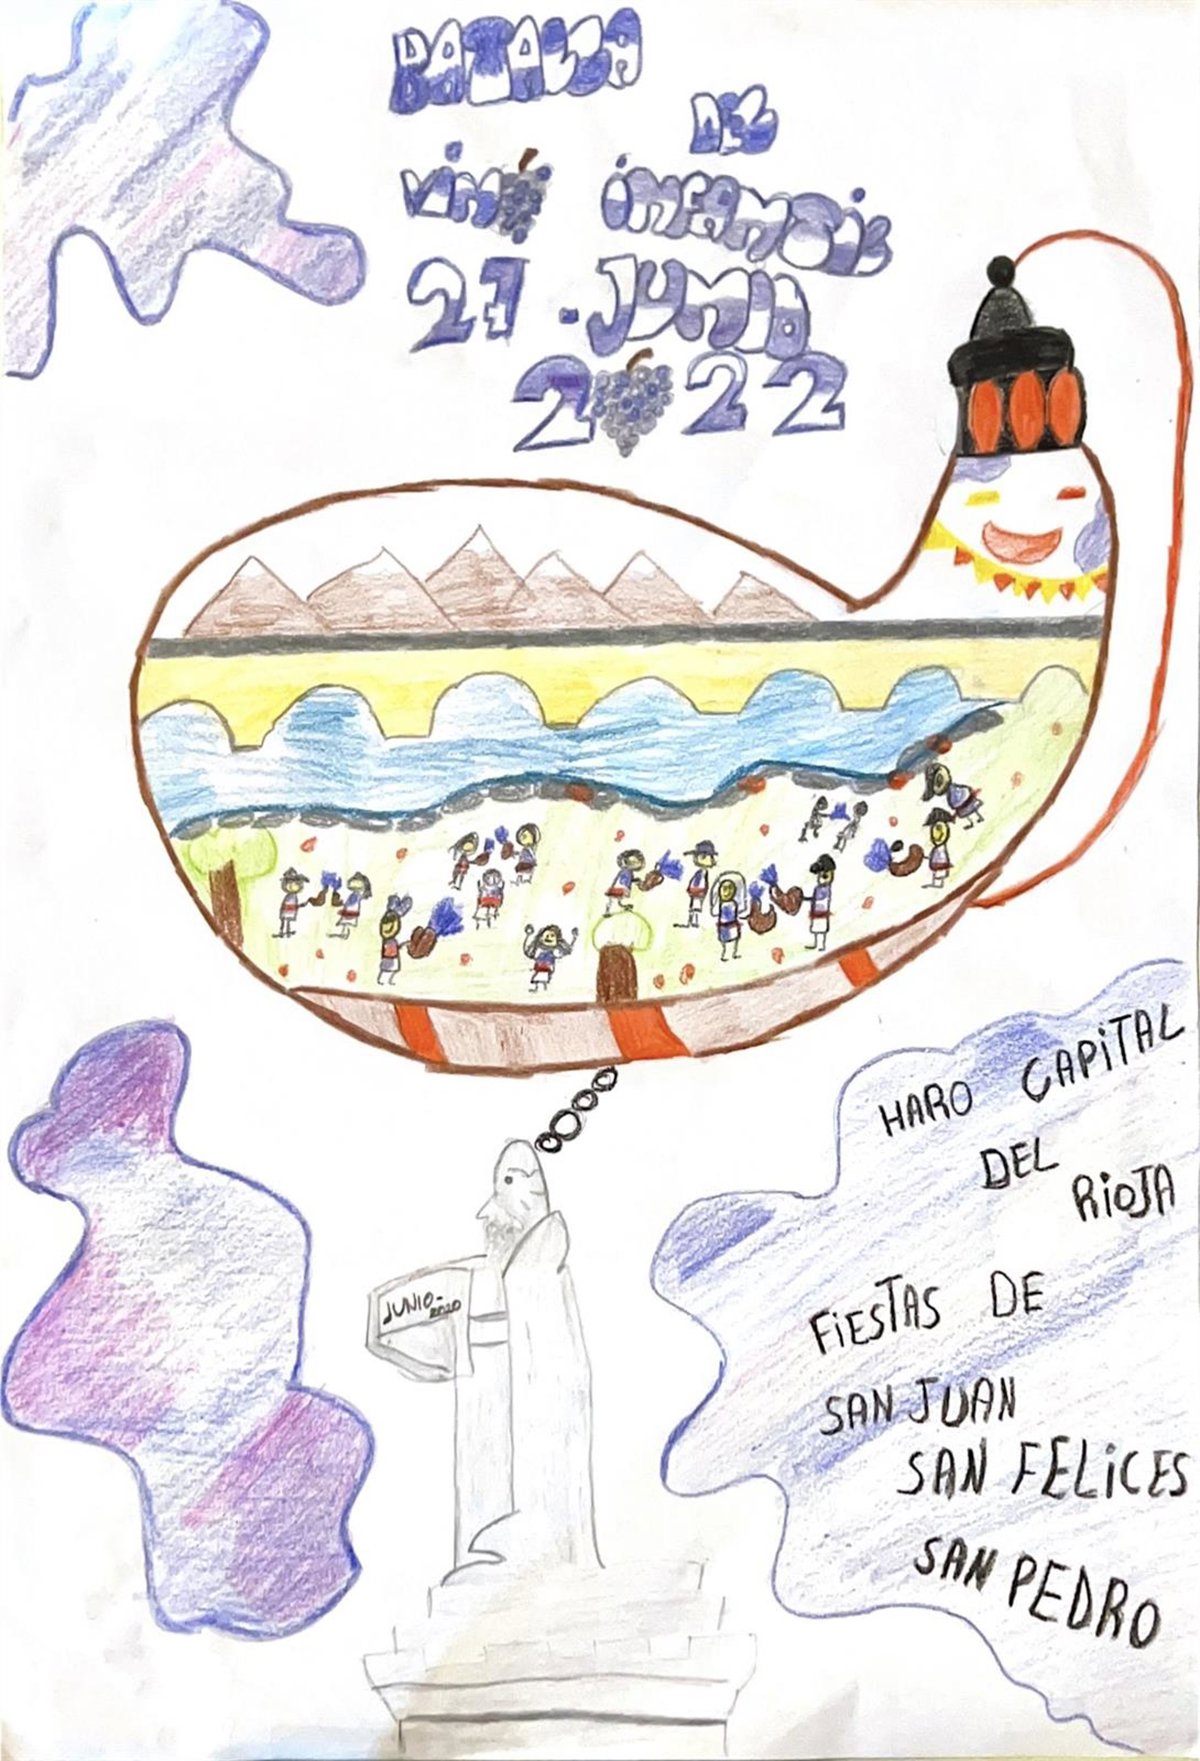 BATALLA
DEL
VINO INFANTIL
27 · JUNIO
2022
HARO CAPITAL
DEL
RIOJA
JUNIO-
2020
FIESTAS DE
SAN JUAN
SAN FELICES
SAN PEDRO